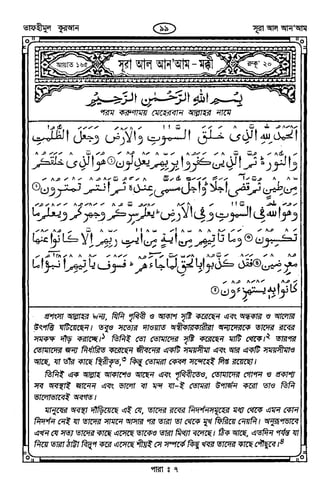 তাফহীমুল কুরআন
১৯
সূরা আল আন'আম
আয়াত ১৬৫
সূরা আল আন'আম - মক্কী
রুকূ' ২০
بِسْمِ اللهِ الرَّحْمٰنِ الرَّحِيْمِ
পরম করুণাময় মেহেরবান আল্লাহর নামে
اَلْحَمْدُ لِلّٰهِ الَّذِيْ خَلَقَ السَّمٰوٰتِ وَالْاَرْضَ وَجَعَلَ الظُّلُمٰتِ
وَالنُّوْرَ ؕ ثُمَّ الَّذِيْنَ كَفَرُوْا بِرَبِّهِمْ يَعْدِلُوْنَ ۝ هُوَ الَّذِيْ خَلَقَكُمْ
مِّنْ طِيْنٍ ثُمَّ قَضٰى اَجَلًا ؕ وَاَجَلٌ مُّسَمًّى عِنْدَهٗ ثُمَّ اَنْتُمْ تَمْتَرُوْنَ ۝
وَهُوَ اللهُ فِي السَّمٰوٰتِ وَفِي الْاَرْضِ ؕ يَعْلَمُ سِرَّكُمْ وَجَهْرَكُمْ وَيَعْلَمُ مَا
تَكْسِبُوْنَ ۝ وَمَا تَاْتِيْهِمْ مِّنْ اٰيَةٍ مِّنْ اٰيٰتِ رَبِّهِمْ اِلَّا كَانُوْا عَنْهَا
مُعْرِضِيْنَ ۝ فَقَدْ كَذَّبُوْا بِالْحَقِّ لَمَّا جَآءَهُمْ ؕ فَسَوْفَ يَاْتِيْهِمْ اَنْۢبٰٓؤُا مَا
كَانُوْا بِهٖ يَسْتَهْزِءُوْنَ ۝
প্রশংসা আল্লাহর জন্য, যিনি পৃথিবী ও আকাশ সৃষ্টি করেছেন এবং অন্ধকার ও আলোর
উৎপত্তি ঘটিয়েছেন। তবুও সত্যের দাওয়াত অস্বীকারকারীরা অন্যদেরকে তাদের রবের
সমকক্ষ দাঁড় করাচ্ছে।১ তিনিই তো তোমাদের সৃষ্টি করেছেন মাটি থেকে।২ তারপর
তোমাদের জন্য নির্ধারিত করেছেন জীবনের একটি সময়সীমা এবং আর একটি সময়সীমাও
আছে, যা তাঁর কাছে স্থিরীকৃত,৩ কিন্তু তোমরা কেবল সন্দেহেই লিপ্ত রয়েছো।
তিনিই এক আল্লাহ আকাশেও আছেন এবং পৃথিবীতেও, তোমাদের গোপন ও প্রকাশ্য
সব অবস্থাই জানেন এবং ভালো বা মন্দ যা-ই তোমরা উপার্জন করো তাও তিনি
ভালোভাবেই অবগত।
মানুষের অবস্থা দাঁড়িয়েছে এই যে, তাদের রবের নিদর্শনসমূহের মধ্য থেকে এমন কোন
নিদর্শন নেই যা তাদের সামনে আসার পর তা থেকে তারা মুখ ফিরিয়ে নেয়নি। অনুরূপভাবে
এখন যে সত্য তাদের কাছে এসেছে তাকেও তারা মিথ্যা বলেছে। ঠিক আছে, এতদিন পর্যন্ত যা
নিয়ে তারা ঠাট্টা বিদ্রূপ করে এসেছে শীঘ্রই সে সম্পর্কে কিছু খবর তাদের কাছে পৌঁছুবে।৪
পারা : ৭